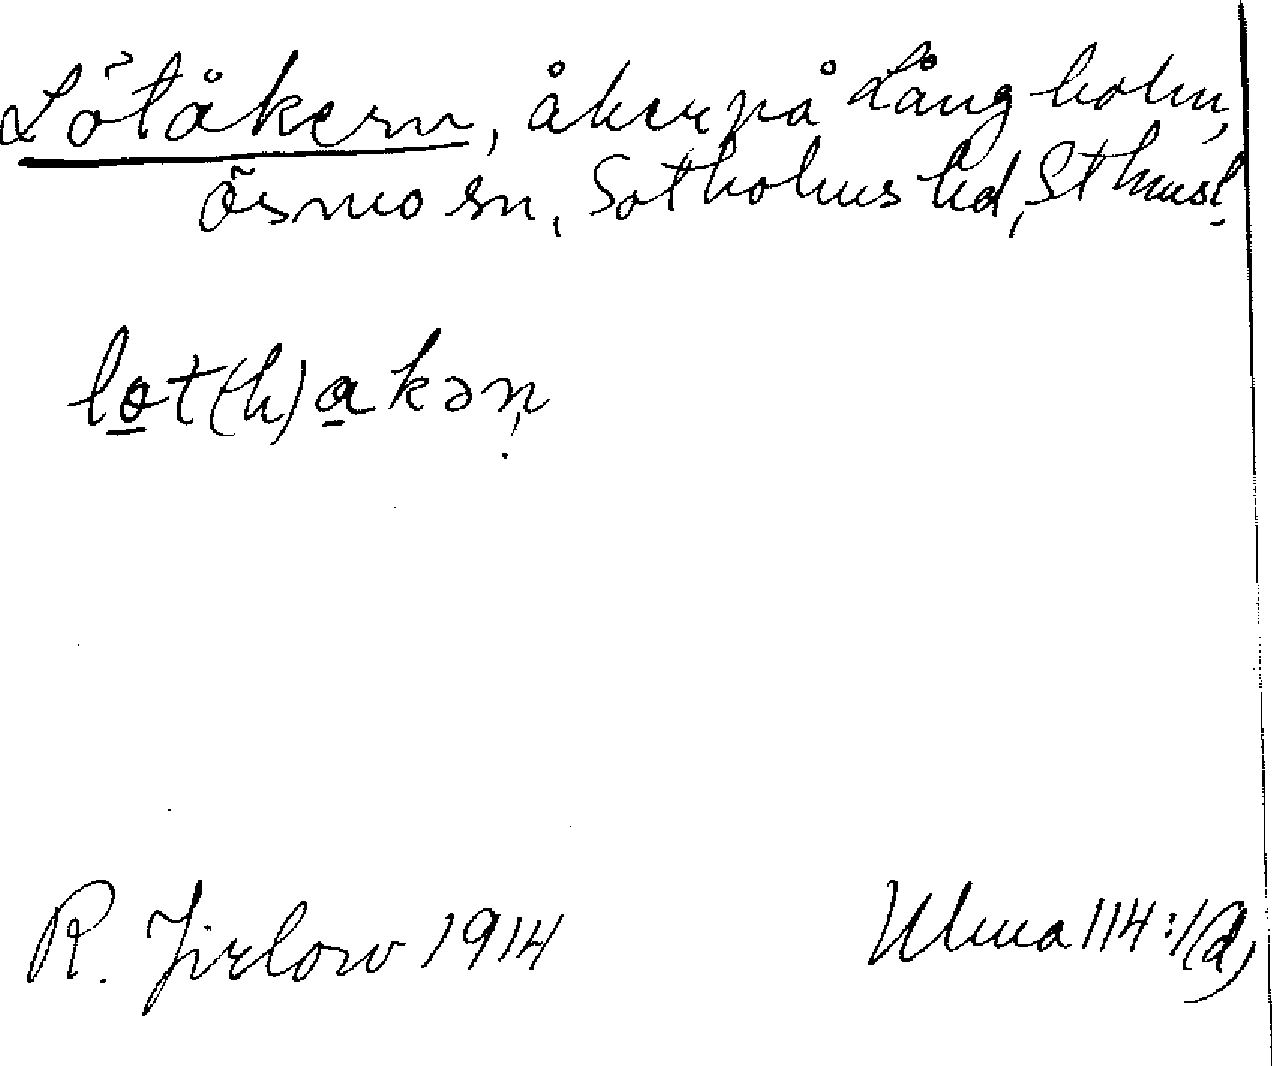 Lötåkern, åker på Långholm,
Ösmo sn, Sotholms hd, Sthmsl.
løt(h)akəṇ
R. Jirlow 1914
Ulma 114:1(a)